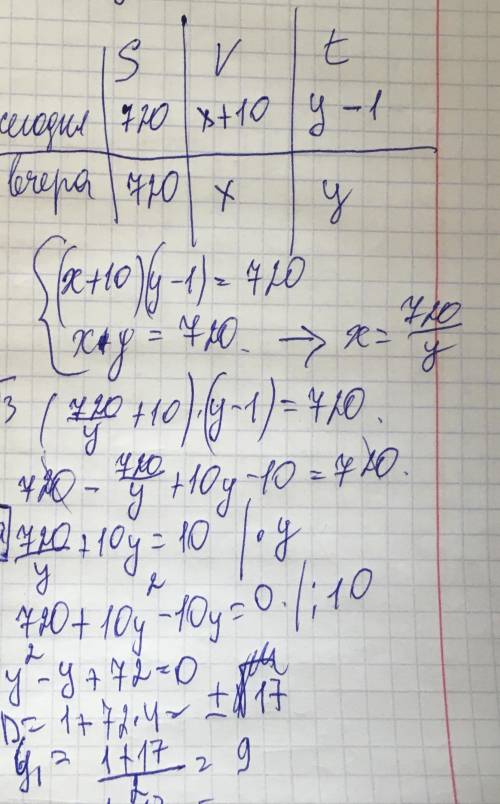 S V t
сегодня 720 x+10 y-1
вчера 720 x y
{(x+10)(y-1)=720
x·y=720. → x=720/y
(720/y+10)·(y-1)=720.
720-720/y+10y-10=720.
720/y+10y=10 |·y
720+10y²-10y=0. |:10
y²-y+72=0
D=1+72·4=±17
y₁=(1+17)/2=9